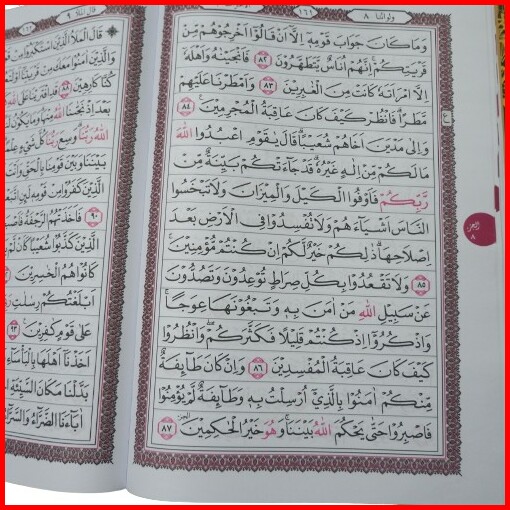 ولواننا ٨
١٦١
وَمَا كَانَ جَوَابَ قَوْمِهٖٓ اِلَّآ اَنْ قَالُوْٓا اَخْرِجُوْهُمْ مِّنْ
قَرْيَتِكُمْۚ اِنَّهُمْ اُنَاسٌ يَّتَطَهَّرُوْنَ ٨٢ فَاَنْجَيْنٰهُ وَاَهْلَهٗٓ
اِلَّا امْرَاَتَهٗ كَانَتْ مِنَ الْغٰبِرِيْنَ ٨٣ وَاَمْطَرْنَا عَلَيْهِمْ
مَّطَرًاۗ فَانْظُرْ كَيْفَ كَانَ عَاقِبَةُ الْمُجْرِمِيْنَ ٨٤
وَاِلٰى مَدْيَنَ اَخَاهُمْ شُعَيْبًاۗ قَالَ يٰقَوْمِ اعْبُدُوا اللّٰهَ
مَا لَكُمْ مِّنْ اِلٰهٍ غَيْرُهٗۗ قَدْ جَاۤءَتْكُمْ بَيِّنَةٌ مِّنْ
رَّبِّكُمْ فَاَوْفُوا الْكَيْلَ وَالْمِيْزَانَ وَلَا تَبْخَسُوا
النَّاسَ اَشْيَاۤءَهُمْ وَلَا تُفْسِدُوْا فِى الْاَرْضِ بَعْدَ
اِصْلَاحِهَاۗ ذٰلِكُمْ خَيْرٌ لَّكُمْ اِنْ كُنْتُمْ مُّؤْمِنِيْنَ
٨٥ وَلَا تَقْعُدُوْا بِكُلِّ صِرَاطٍ تُوْعِدُوْنَ وَتَصُدُّوْنَ
عَنْ سَبِيْلِ اللّٰهِ مَنْ اٰمَنَ بِهٖ وَتَبْغُوْنَهَا عِوَجًاۚ
وَاذْكُرُوْٓا اِذْ كُنْتُمْ قَلِيْلًا فَكَثَّرَكُمْۖ وَانْظُرُوْا
كَيْفَ كَانَ عَاقِبَةُ الْمُفْسِدِيْنَ ٨٦ وَاِنْ كَانَ طَاۤىِٕفَةٌ
مِّنْكُمْ اٰمَنُوْا بِالَّذِيْٓ اُرْسِلْتُ بِهٖ وَطَاۤىِٕفَةٌ لَّمْ يُؤْمِنُوْا
فَاصْبِرُوْا حَتّٰى يَحْكُمَ اللّٰهُ بَيْنَنَاۚ وَهُوَ خَيْرُ الْحٰكِمِيْنَ ٨٧
ع
الجزء
٨
قال الملا ٩
قَالَ الْمَلَاُ الَّذِيْنَ اسْتَكْبَرُوْا مِنْ
وَالَّذِيْنَ اٰمَنُوْا مَعَكَ مِنْ قَرْيَتِنَآ
كُنَّا كٰرِهِيْنَ ٨٨ قَدِ افْتَرَيْنَا عَلَى
بَعْدَ اِذْ نَجّٰىنَا اللّٰهُ مِنْهَاۗ وَمَا يَكُوْنُ
اللّٰهُ رَبُّنَاۗ وَسِعَ رَبُّنَا كُلَّ شَيْءٍ
بَيْنَنَا وَبَيْنَ قَوْمِنَا بِالْحَقِّ وَاَنْتَ
الَّذِيْنَ كَفَرُوْا مِنْ قَوْمِهٖ لَىِٕنِ
٩٠ فَاَخَذَتْهُمُ الرَّجْفَةُ
الَّذِيْنَ كَذَّبُوْا شُعَيْبًا كَاَنْ لَّمْ
كَانُوْا هُمُ الْخٰسِرِيْنَ
اَبْلَغْتُكُمْ رِسٰلٰتِ
عَلٰى قَوْمٍ كٰفِرِيْنَ ٩٣
اَخَذْنَآ اَهْلَهَا بِالْبَأْسَاۤءِ
بَدَّلْنَا مَكَانَ السَّيِّئَةِ
اٰبَاۤءَنَا الضَّرَّاۤءُ وَالسَّرَّاۤءُ